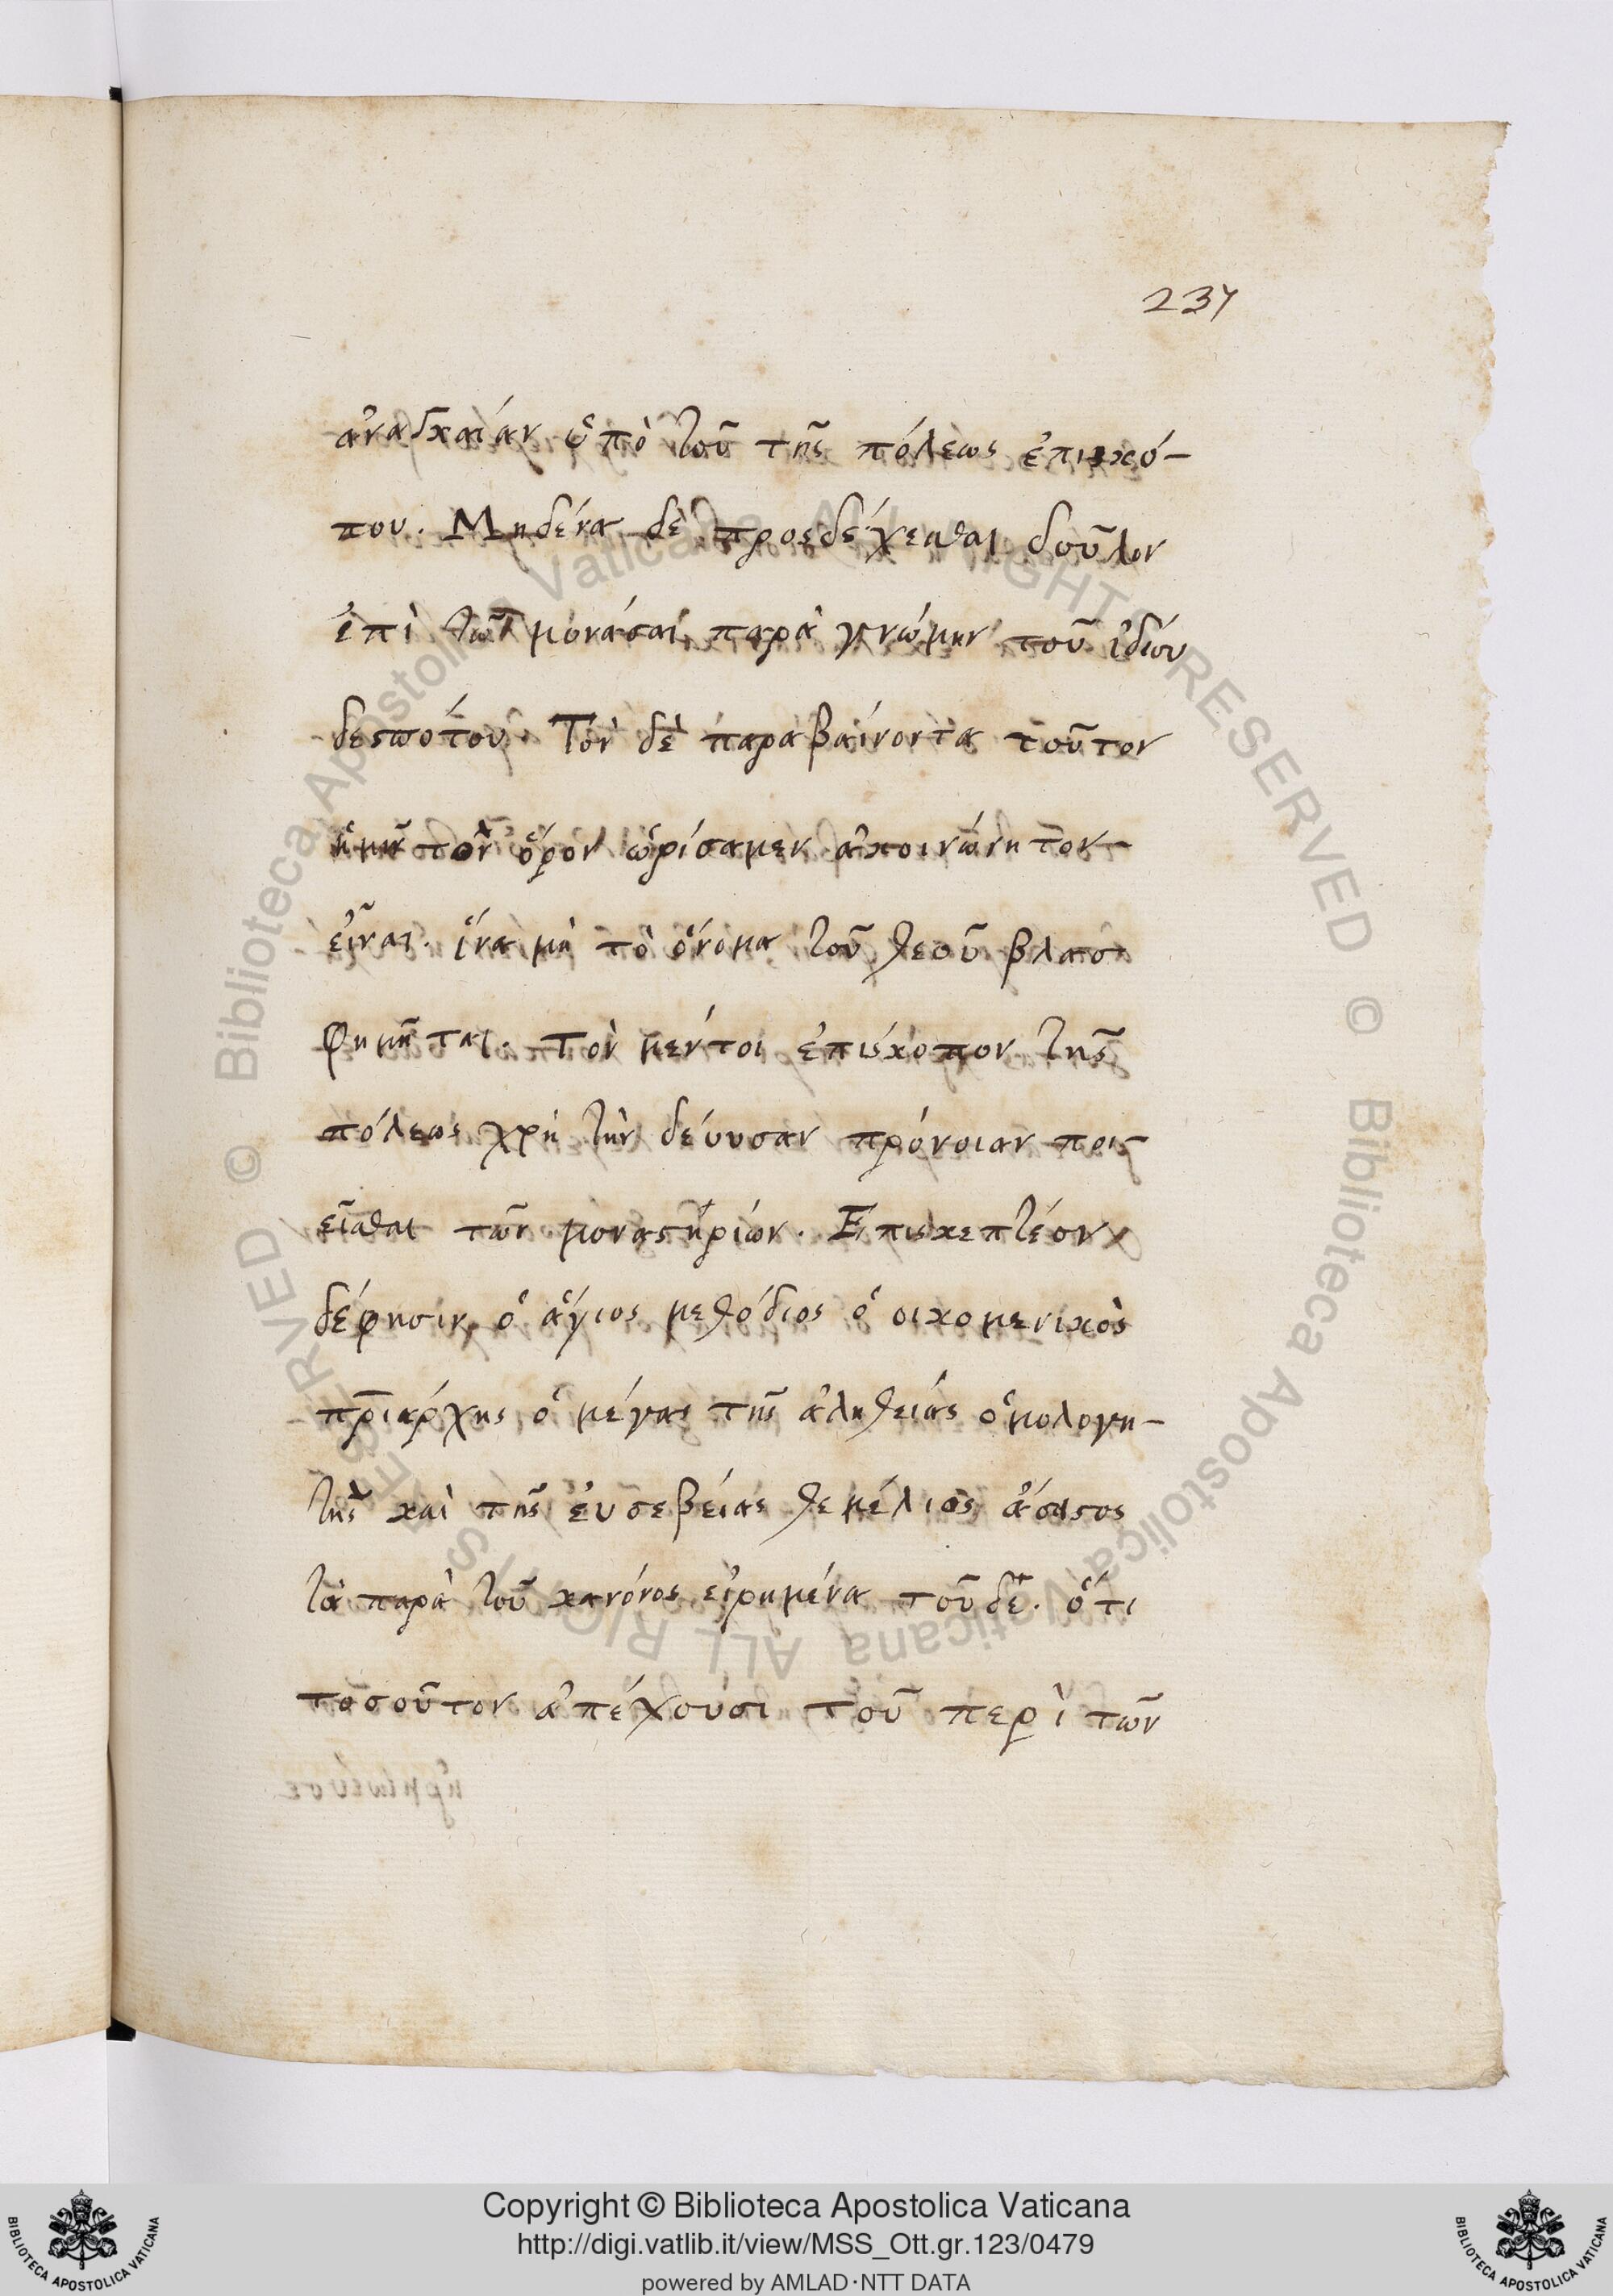 237
ἀναγκαίαν ὑπὸ τοῦ τῆς πόλεως ἐπισκό-
που. Μηδένα δὲ προσδέχεσθαι δοῦλον
ἐπὶ τῶ μονάσαι παρὰ γνώμην τοῦ ἰδίου
δεσπότου. Τὸν δὲ παραβαίνοντα τοῦτον
ἡμῶν τὸν ὅρον ὡρίσαμεν ἀκοινώνητον
εἶναι. ἵνα μὴ τὸ ὄνομα τοῦ θεοῦ βλασ
φημῆται. Τὸν μέντοι ἐπίσκοπον τῆς
πόλεως χρὴ τὴν δέουσαν πρόνοιαν ποι
εῖσθαι τῶν μοναστηρίων. Ἐπισκεπτέον
δέ φησιν ὁ ἅγιος μεθόδιος ὁ οἰκομενικὸς
πρ̅ιάρχης ὁ μέγας τῆς ἀληθείας ὁμολογη-
τὴς καὶ τῆς εὐσεβείας θεμέλιος ἄσειστος
τὰ παρὰ τοῦ κανόνος εἰρημένα τοῦδε. ὅτι
τοσοῦτον ἀπέχουσι τοῦ περὶ τῶν
Copyright © Biblioteca Apostolica Vaticana
http://digi.vatlib.it/view/MSS_Ott.gr.123/0479
powered by AMLAD·NTT DATA
BIBLIOTECA APOSTOLICA VATICANA
BIBLIOTECA APOSTOLICA VATICANA
© Biblioteca Apostolica Vaticana ALL RIGHTS RESERVED
© Biblioteca Apostolica Vaticana ALL RIGHTS RESERVED